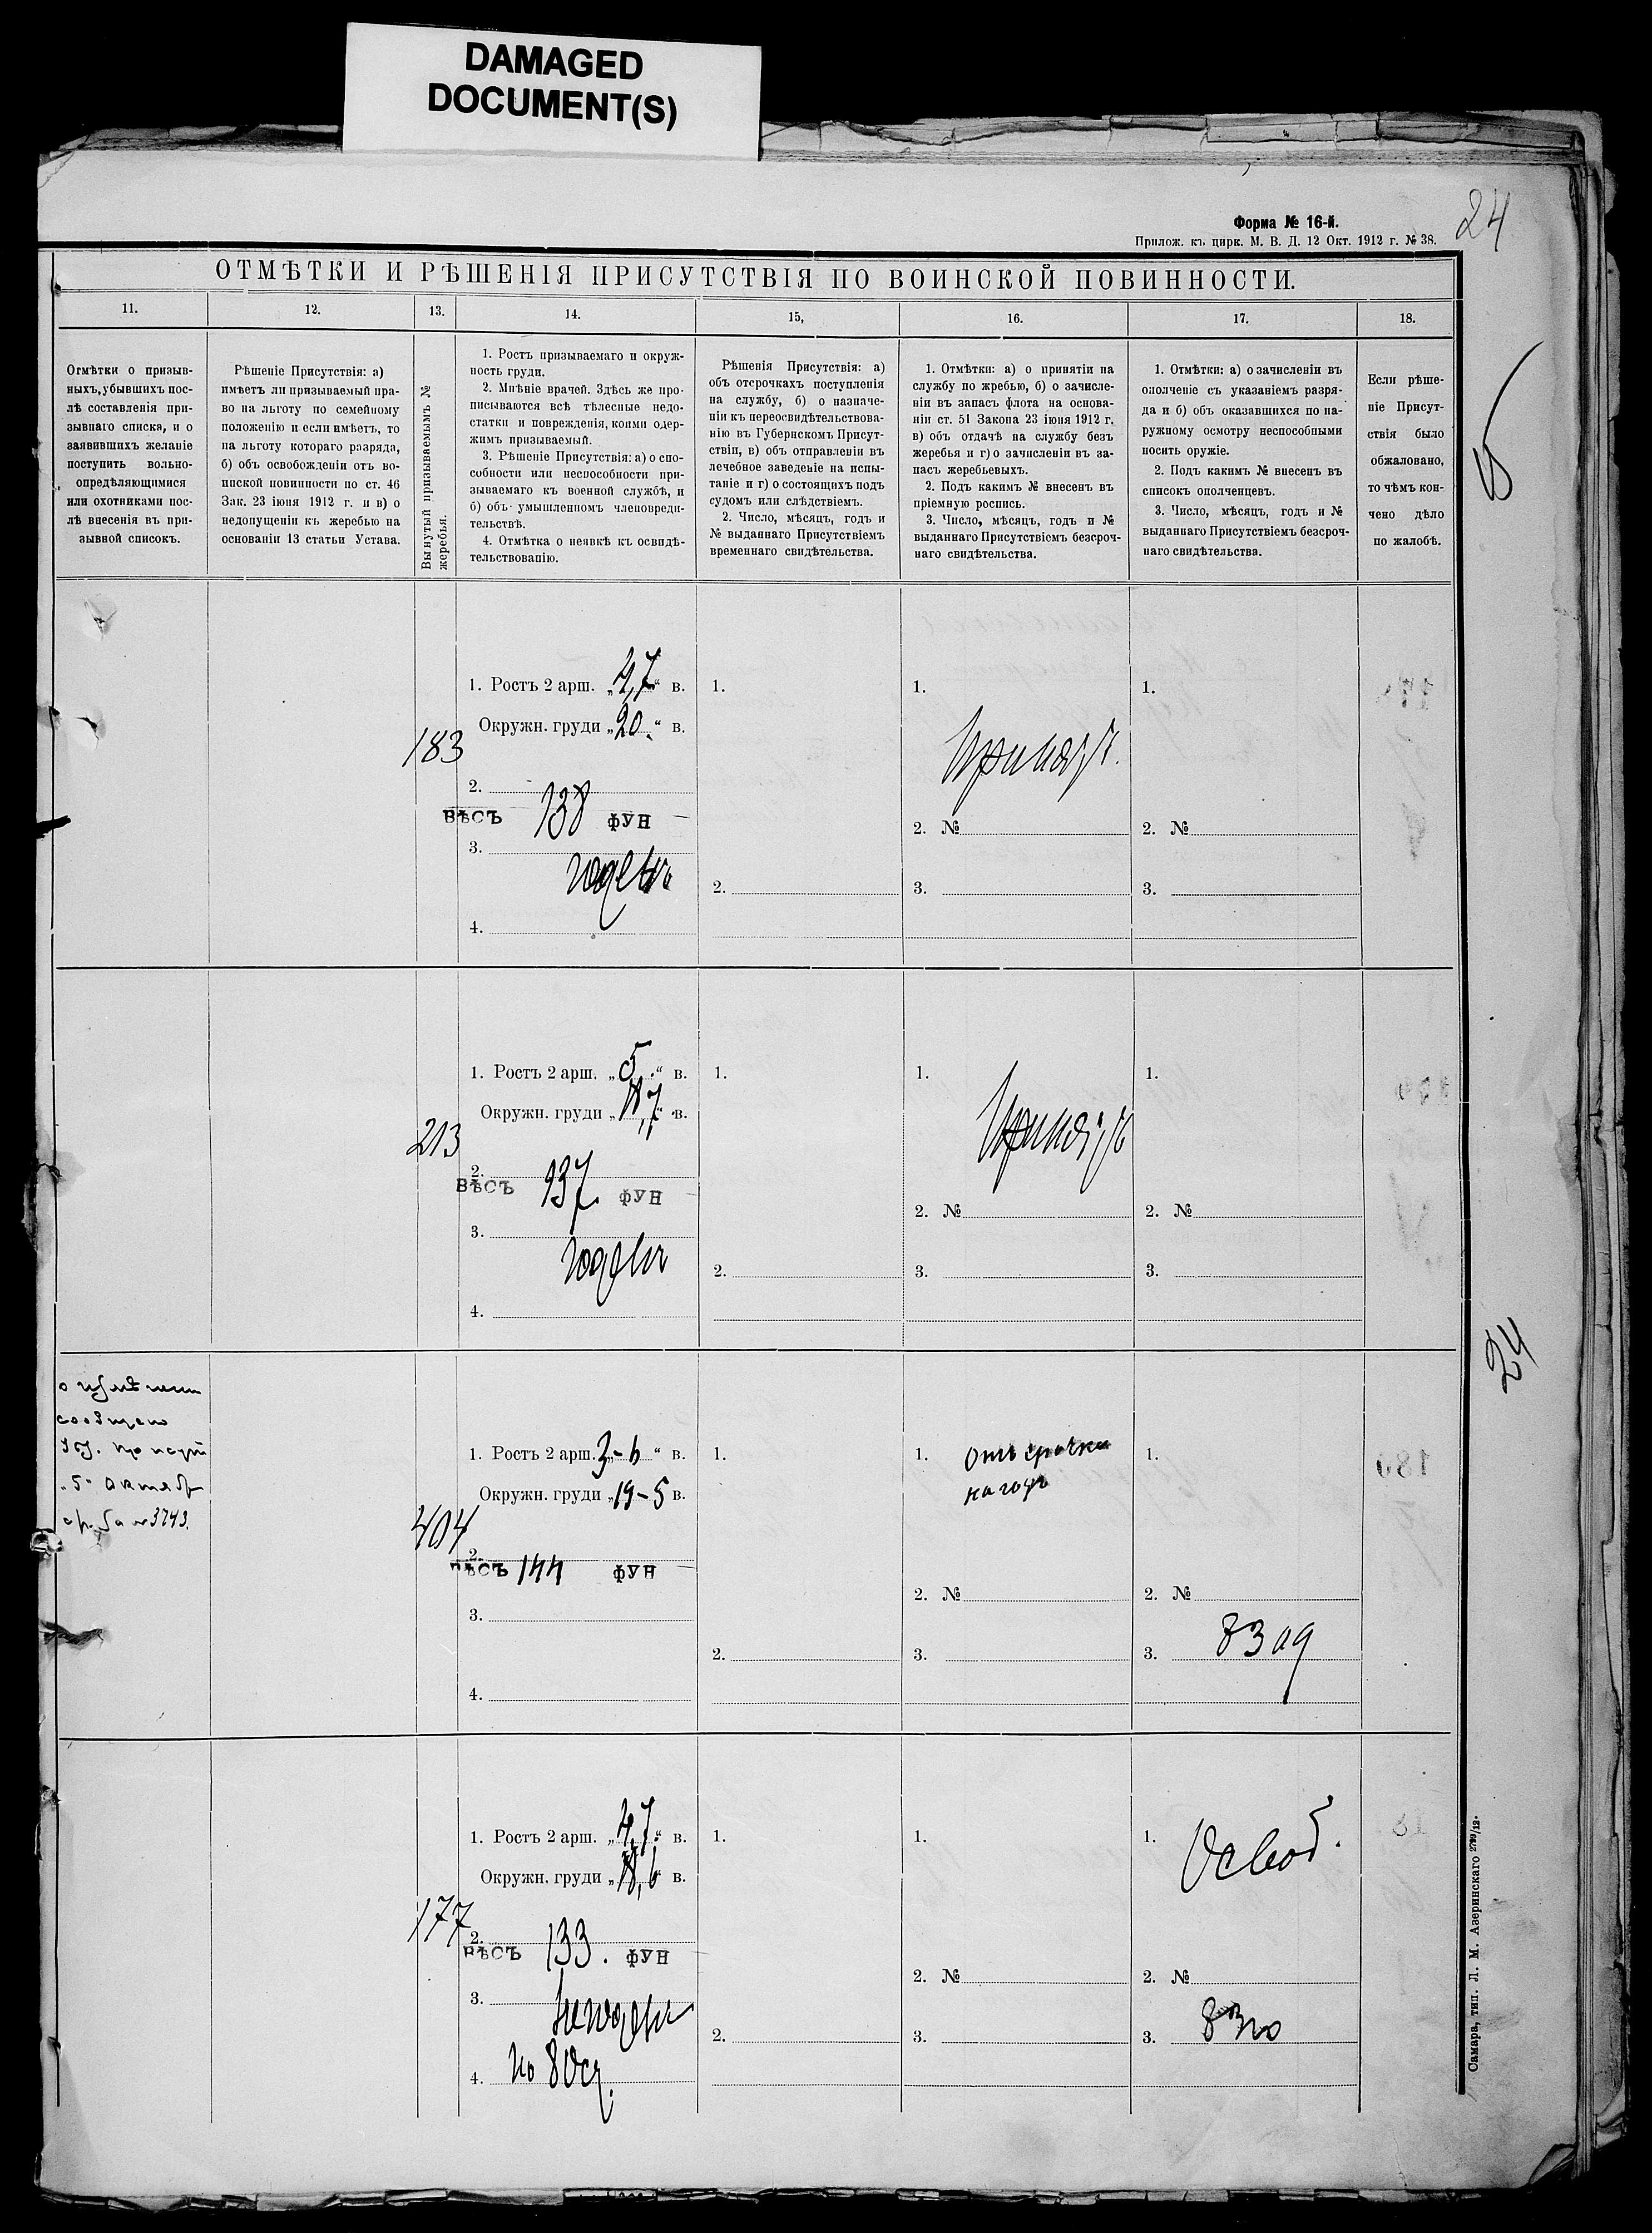 DAMAGED
DOCUMENT(S)
24
Форма № 16-й.
Прилож. къ цирк. М. В. Д. 12 Окт. 1912 г. № 38.
ОТМѢТКИ И РѢШЕНІЯ ПРИСУТСТВІЯ ПО ВОИНСКОЙ ПОВИННОСТИ.
11. 12. 13. 14. 15, 16. 17. 18.
Отмѣтки о призыв-
ныхъ, убывшихъ пос-
лѣ составленія при-
зывнаго списка, и о
заявившихъ желаніе
поступить вольно-
опредѣляющимися
или охотниками пос-
лѣ внесенія въ при-
зывной списокъ.
Рѣшеніе Присутствія: а)
имѣетъ ли призываемый пра-
во на льготу по семейному
положенію и если имѣетъ, то
на льготу котораго разряда,
б) объ освобожденіи отъ во-
инской повинности по ст. 46
Зак. 23 іюня 1912 г. и в) о
недопущеніи къ жеребью на
основаніи 13 статьи Устава.
Вынутый призываемымъ №
жеребья.
1. Ростъ призываемаго и окруж-
ность груди.
2. Мнѣніе врачей. Здѣсь же про-
писываются всѣ тѣлесные недо-
статки и поврежденія, коими одер-
жимъ призываемый.
3. Рѣшеніе Присутствія: а) о спо-
собности или неспособности при-
зываемаго къ военной службѣ, и
б) объ умышленномъ членовреди-
тельствѣ.
4. Отмѣтка о неявкѣ къ освидѣ-
тельствованію.
Рѣшенія Присутствія: а)
объ отсрочкахъ поступленія
на службу, б) о назначе-
ніи къ переосвидѣтельствова-
нію въ Губернскомъ Присут-
ствіи, в) объ отправленіи въ
лечебное заведеніе на испы-
таніе и г) о состоящихъ подъ
судомъ или слѣдствіемъ.
2. Число, мѣсяцъ, годъ и
№ выданнаго Присутствіемъ
временнаго свидѣтельства.
1. Отмѣтки: а) о принятіи на
службу по жребью, б) о зачисле-
ніи въ запасъ флота на основа-
ніи ст. 51 Закона 23 іюня 1912 г.
в) объ отдачѣ на службу безъ
жеребья и г) о зачисленіи въ за-
пасъ жеребьевыхъ.
2. Подъ какимъ № внесенъ въ
пріемную роспись.
3. Число, мѣсяцъ, годъ и №
выданнаго Присутствіемъ безсроч-
наго свидѣтельства.
1. Отмѣтки: а) о зачисленіи въ
ополченіе съ указаніемъ разря-
да и б) объ оказавшихся по на-
ружному осмотру неспособными
носить оружіе.
2. Подъ какимъ № внесенъ въ
списокъ ополченцевъ.
3. Число, мѣсяцъ, годъ и №
выданнаго Присутствіемъ безсроч-
наго свидѣтельства.
Если рѣше-
ніе Присут-
ствія было
обжаловано,
то чѣмъ кон-
чено дѣло
по жалобѣ.
183
1. Ростъ 2 арш. „4,7“ в.
Окружн. груди „20“ в.
2.
ВѢСЪ 138 ФУН
3.
годенъ
4.
1.
2.
1.
Принятъ.
2. №
3.
1.
2. №
3.
213
1. Ростъ 2 арш. „5“ в.
Окружн. груди „18,7“ в.
2.
ВѢСЪ 137 ФУН
3.
годенъ
4.
1.
2.
1.
Принятъ
2. №
3.
1.
2. №
3.
сообщено
„5“ Октябр
за № 3743.
404
1. Ростъ 2 арш. „3-6“ в.
Окружн. груди „19-5 в.
2.
ВѢСЪ 144 ФУН
3.
4.
1.
2.
1. Отсрочка
на годъ
2. №
3.
1.
2. №
3.
177
1. Ростъ 2 арш. „4,7“ в.
Окружн. груди „18,6“ в.
2.
ВѢСЪ 133. ФУН
3.
негоденъ
4.
1.
2.
1.
2. №
3.
1. Освоб.
2. №
3.
24
Самара, тип. Л. М. Азеринскаго